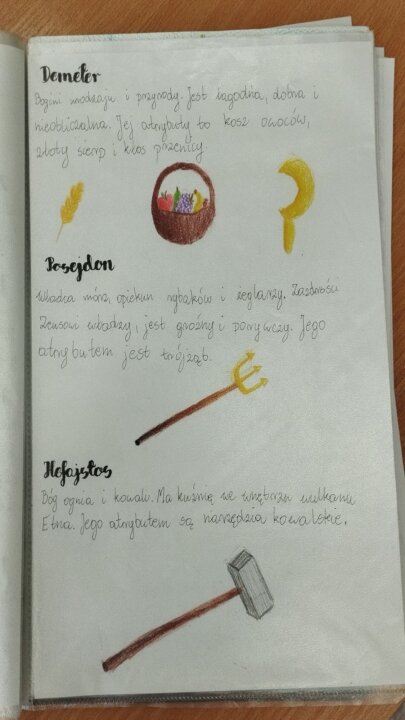 Demeter
Bogini urodzaju i przyrody. Jest łagodna, dobra i
nieobliczalna. Jej atrybuty to kosz owoców,
złoty sierp i kłos pszenicy.
Posejdon
Władca mórz, opiekun rybaków i żeglarzy. Zazdrości
Zeusowi władzy, jest groźny i porywczy. Jego
atrybutem jest trójząb.
Hefajstos
Bóg ognia i kowali. Ma kuźnię we wnętrzu wulkanu
Etna. Jego atrybutem są narzędzia kowalskie.